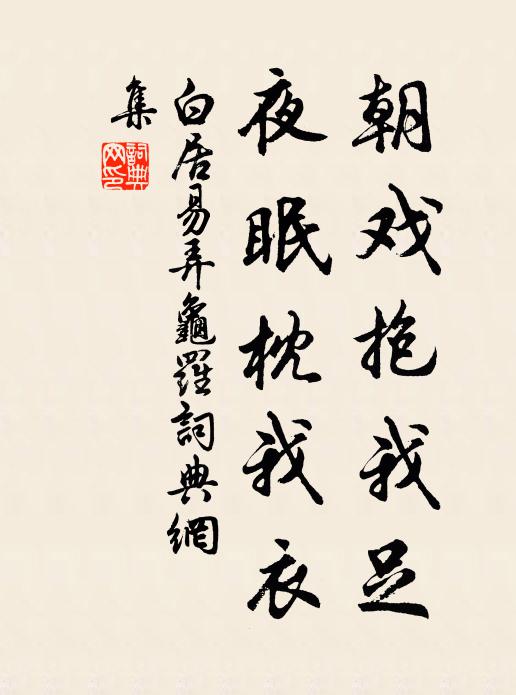 朝戏抱我足
夜眠枕我衣
白居易弄龜羅詞典網
集
詞典網印